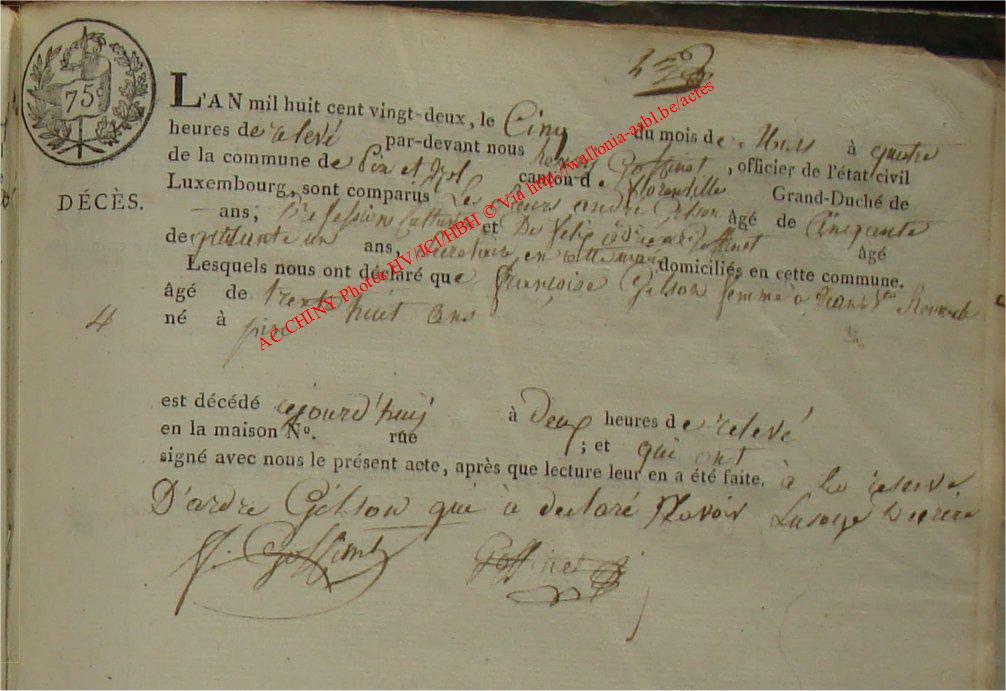 75c
L'AN mil huit cent vingt-deux, le Cinq du mois de Mars à quatre
heures de relevé par-devant nous henry Goffinet, officier de l'état civil
de la commune de Pin et Izel canton de florenville Grand-Duché de
Luxembourg, sont comparus Les sieurs andré Gilson âgé de Cinquante
ans, Profession Cultivateur et De felix Goffinet âgé
de ans, en domiciliés en cette commune.
Lesquels nous ont déclaré que françoise Gilson femme à
âgé de trente huit ans
né à pin
DÉCÈS.
4
est décédé ajourd'huij à Deux heures de relevé
en la maison No. rue ; et qui ont
signé avec nous le présent acte, après que lecture leur en a été faite. à la reserve
D'ardre Gilson qui à declaré
Goffinet
Goffinet
AC CHINY Photos HV/JCI/HBH © Via http://wallonia-asbl.be/actes